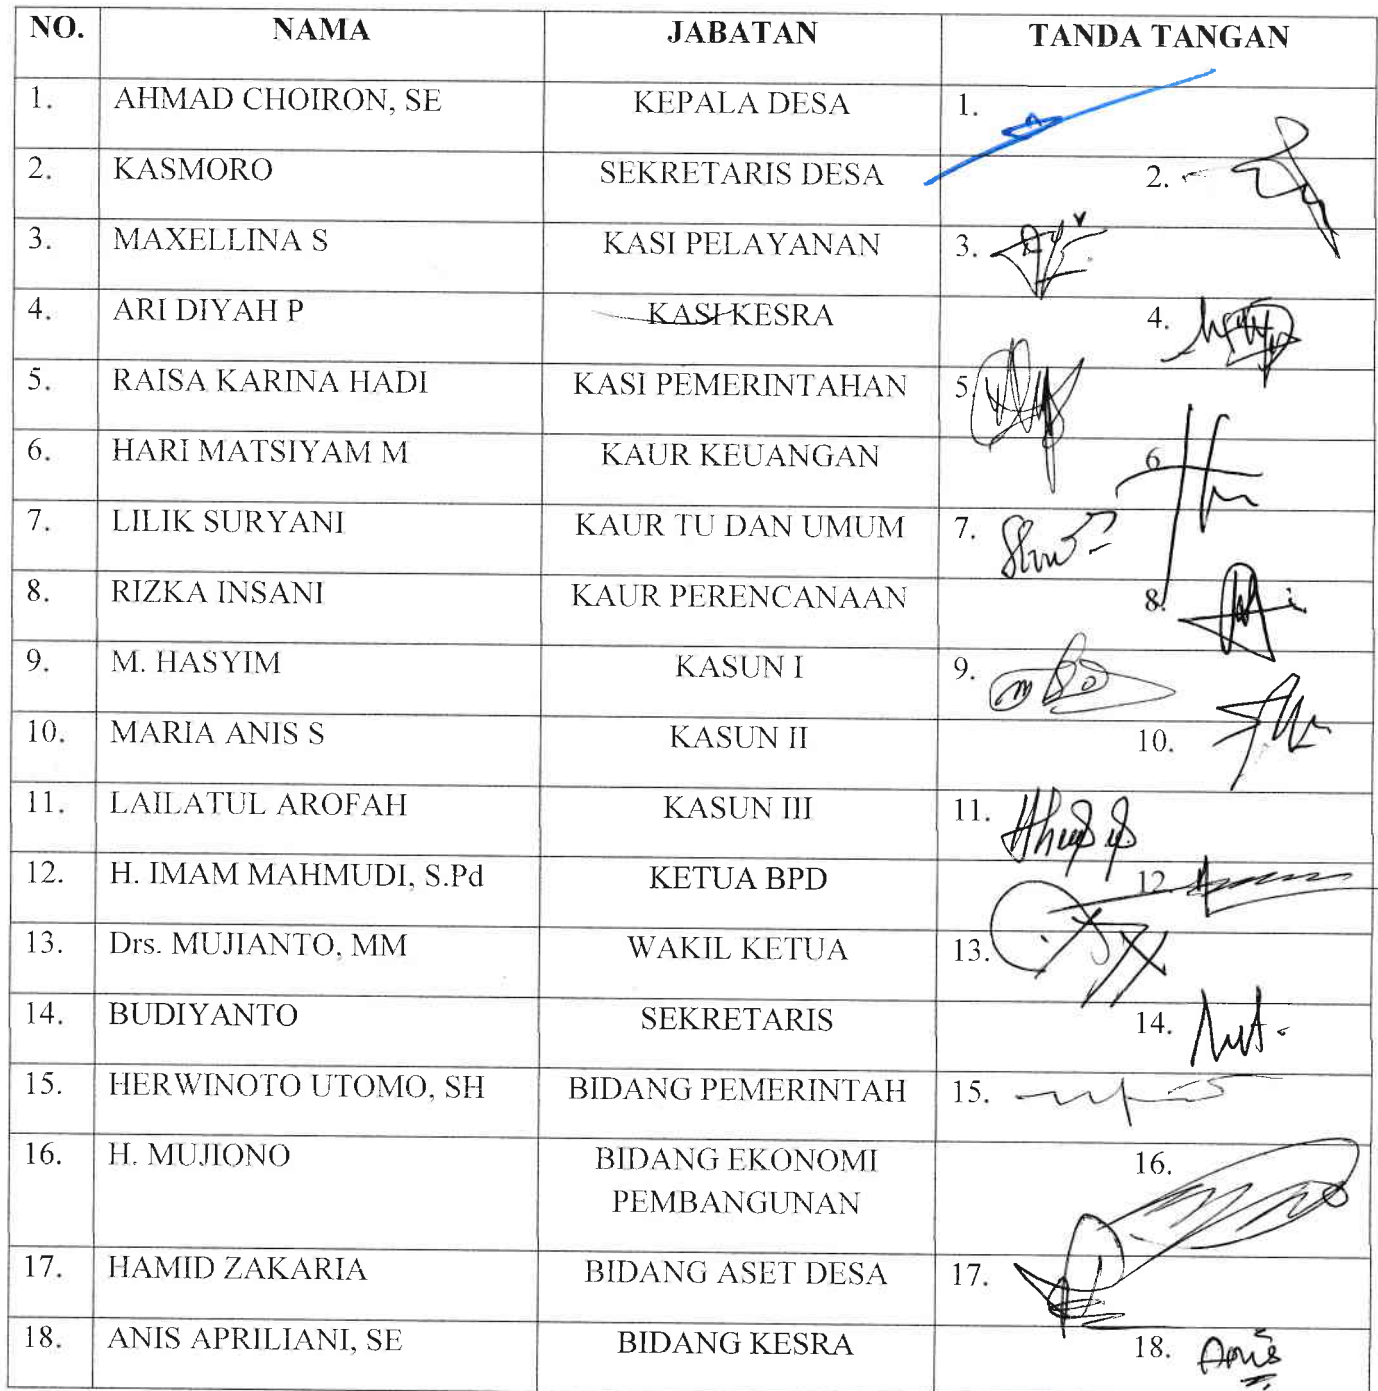 NO. NAMA JABATAN TANDA TANGAN
1. AHMAD CHOIRON, SE KEPALA DESA 1.
2. KASMORO SEKRETARIS DESA 2.
3. MAXELLINA S KASI PELAYANAN 3.
4. ARI DIYAH P KASI KESRA 4.
5. RAISA KARINA HADI KASI PEMERINTAHAN 5
6. HARI MATSIYAM M KAUR KEUANGAN 6
7. LILIK SURYANI KAUR TU DAN UMUM 7.
8. RIZKA INSANI KAUR PERENCANAAN 8.
9. M. HASYIM KASUN I 9.
10. MARIA ANIS S KASUN II 10.
11. LAILATUL AROFAH KASUN III 11.
12. H. IMAM MAHMUDI, S.Pd KETUA BPD 12.
13. Drs. MUJIANTO, MM WAKIL KETUA 13.
14. BUDIYANTO SEKRETARIS 14.
15. HERWINOTO UTOMO, SH BIDANG PEMERINTAH 15.
16. H. MUJIONO BIDANG EKONOMI 16.
PEMBANGUNAN
17. HAMID ZAKARIA BIDANG ASET DESA 17.
18. ANIS APRILIANI, SE BIDANG KESRA 18. Anis